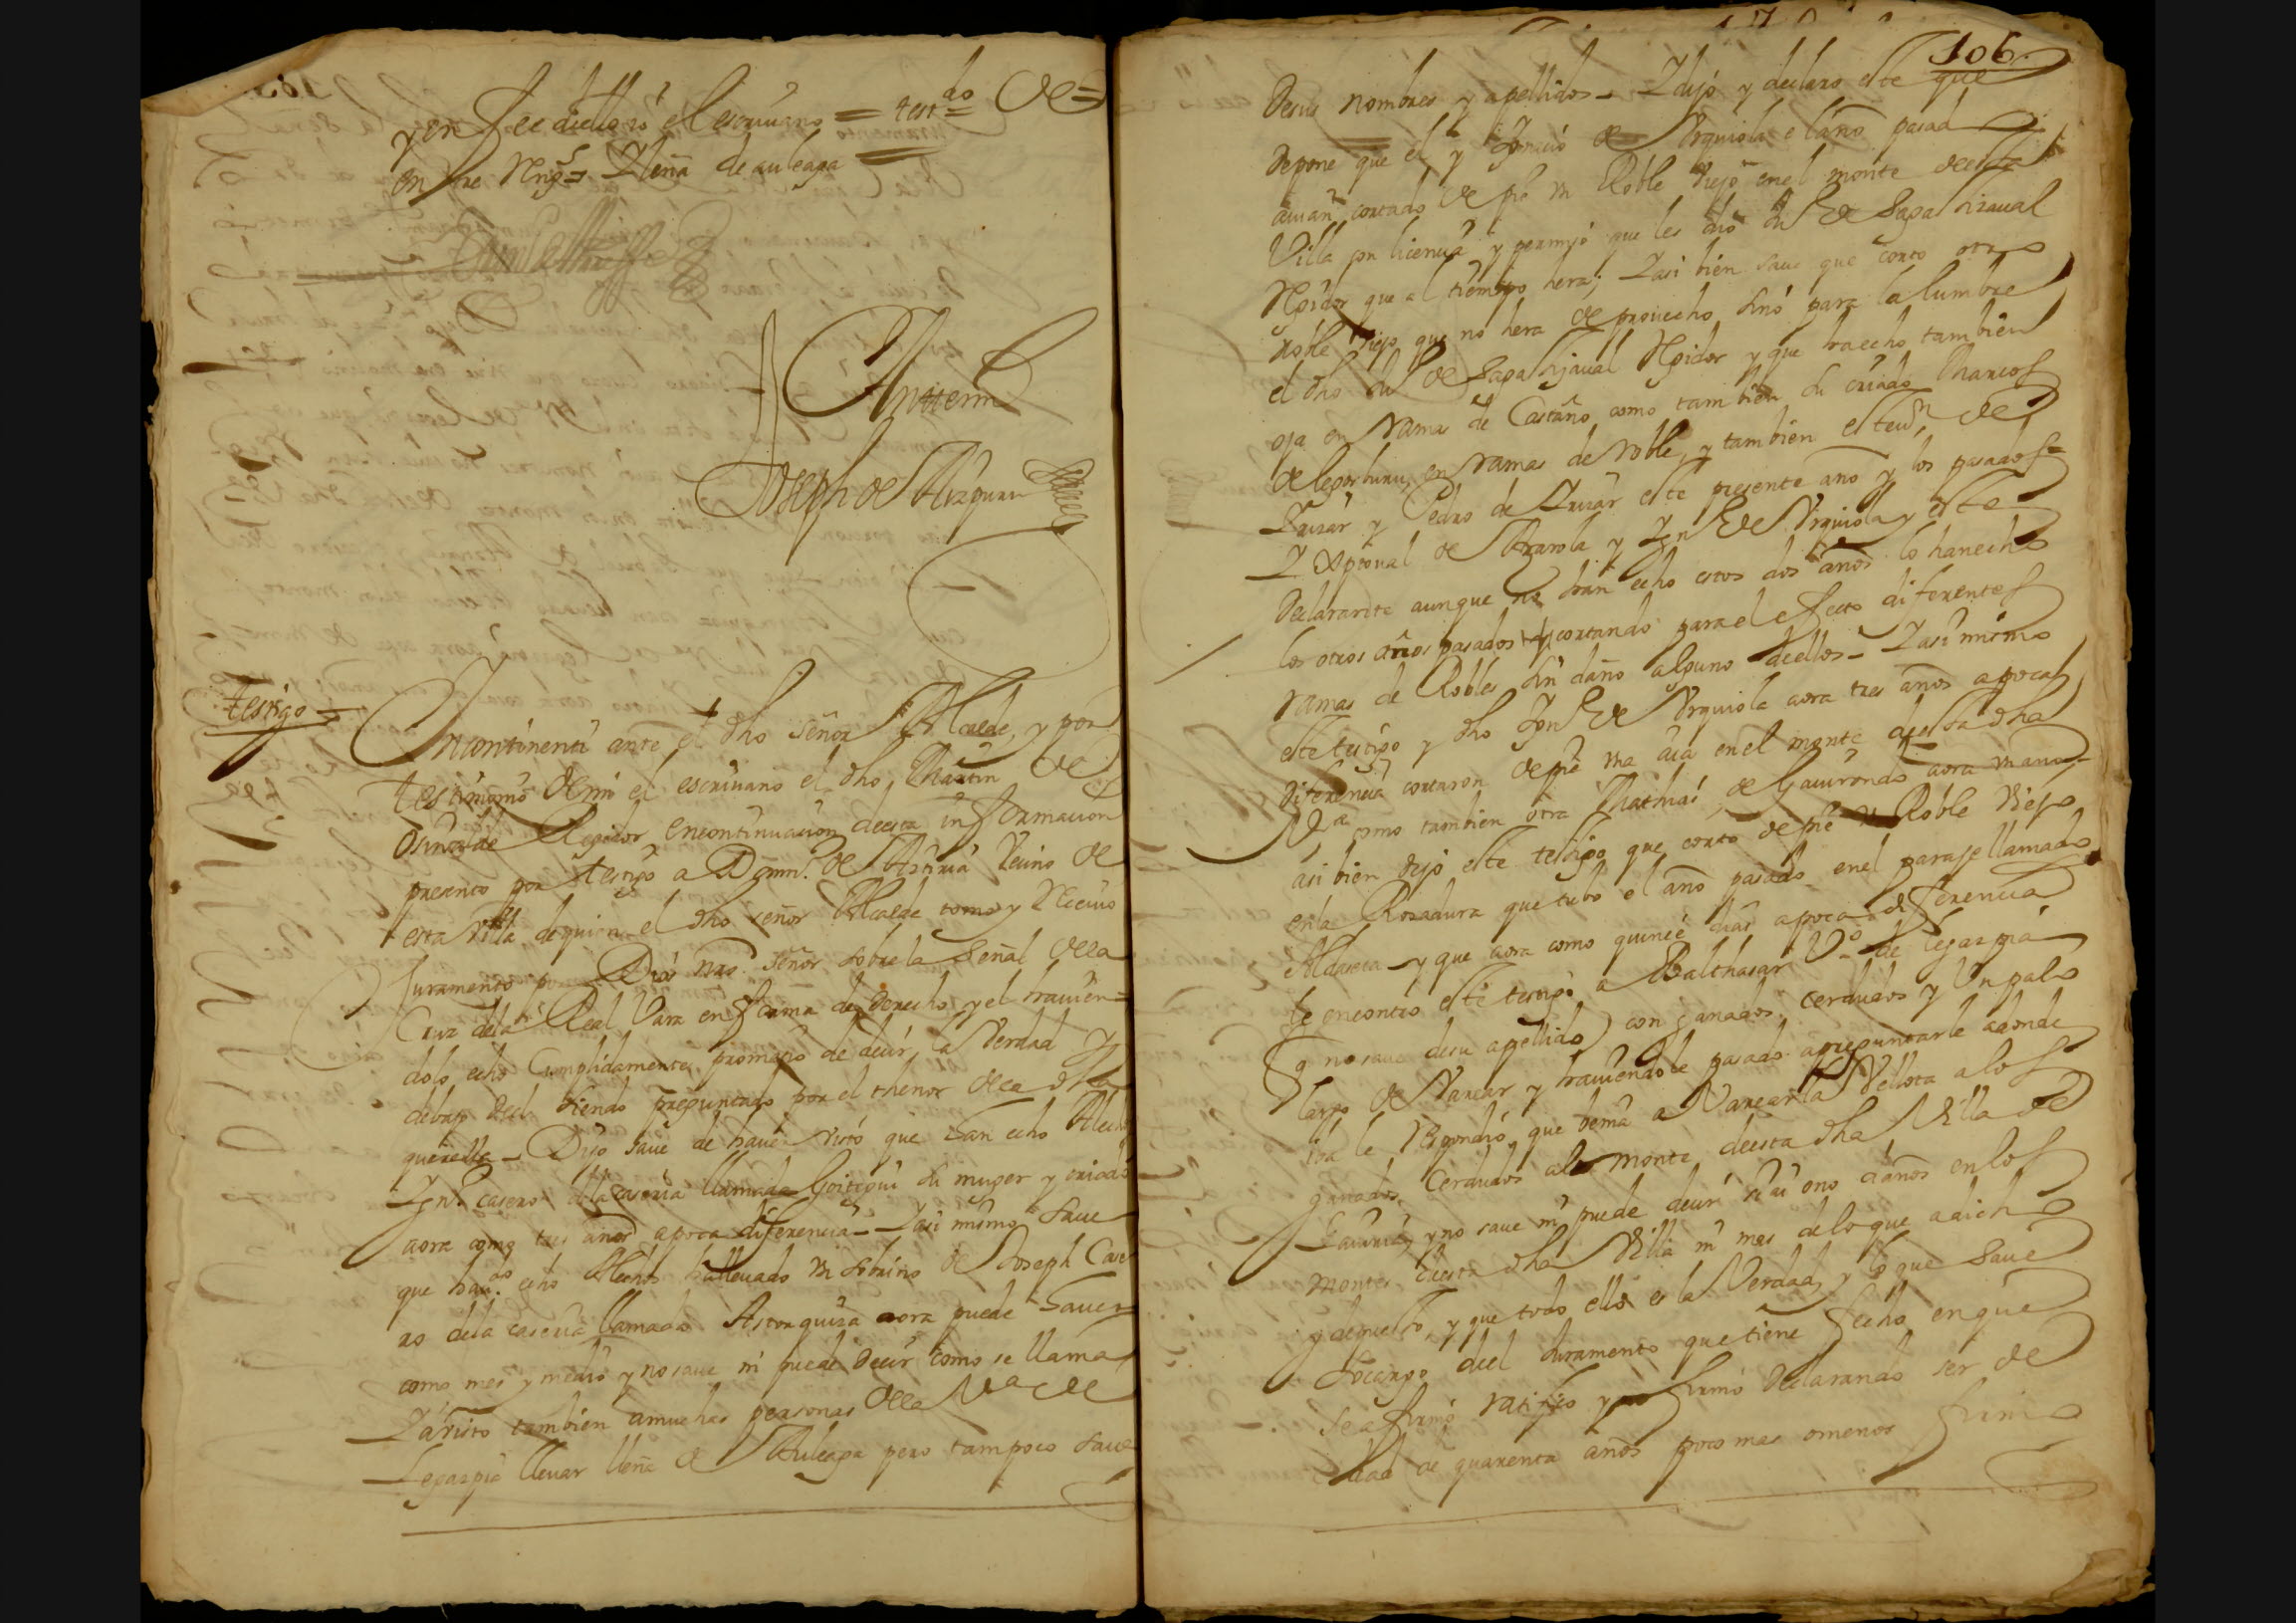 y en fee dello io el escriuano = testdo De=
entre Rngs= Y leña de auleaga
Antemi
Joseph de Aizpuru
testigo=
Yncontinenti ante el dho señor Alcalde, y por
testimonio de mi el escriuano el dho Martin de
Regidor en continuacion deesta informacion
presento por testigo a Domin.o de Veçino de
esta Villa de quien el dho señor Alcalde tomo y Reciuio
Juramento por Dios nro señor sobre la señal de la
Cruz de la Real Vara en forma de derecho y el hauien=
dolo echo Cumplidamente prometio de decir la Verdad y
debajo del siendo preguntado por el thenor de la dha
querella - Dijo saue de hauer visto que han echo
casero de la caseria llamada Goitegui su muger y criado
aora como tres años a poca diferencia - Y asi mismo saue
que echo lleuado vn sobrino de Joseph Case
ro de la caseria llamada aora puede hauer
como mes y medio y no saue ni puede decir como se llama
Y a visto tambien a muchas personas de la Va de
Legazpia lleuar lleña de Auleaga pero tampoco saue
106
de sus nombres y apellidos - Y dijo y declaro este que
depone que el y Ignacio de Vrquiola el año pasado
auian cortado de pie vn Roble Viejo en el monte de esta
Villa con licencia y permiso que les dio de Sagastizaual
Rejidor que al tiempo hera; Y asi bien saue que corto otro
roble viejo que no hera de prouecho sino para la lumbre
el dho de Sagastizaual Rejidor y que ha echo tambien
oja en ramas de Castaño como tambien su criado Marcos
de Legorburu, en ramas de roble, y tambien de
y Pedro de este presente año y los pasados=
Y Xptoual de y Ign.o de Vrquiola y este
Declarante aunque no han echo estos dos años lo han echo
los otros años pasados cortando para el efecto diferentes
ramas de Robles sin daño alguno de ellos - Y asi mismo
este testigo y dho Ign.o de Vrquiola aora tres años a poca
diferencia cortaron de pie vna aia en el monte de esta dha
Va como tambien otra Mathias de Gauirondo aora vn año=
asi bien dijo este testigo que corto de pie vn Roble Viejo
en la Rozadura que tubo el año pasado en el paraje llamado
y que aora como quince dias a poca diferencia
se encontro este testigo a Balthasar Vo de Legazpia
q no saue de su apellido) con ganados cerdudos y Vn palo
largo de Varear y hauiendole pasado a preguntarle adonde
iba le respondio que benia a Varear la Vellota a los
ganados Cerdudos al monte de esta dha Villa de
y no saue ni puede decir si ai o no daños en los
montes de esta dha Villa ni mas de lo que a dicho
y depuesto, y que todo ello es la Verdad, y lo que saue
so cargo del Juramento que tiene fecho en que
se afirmo ratifico y firmo declarando ser de
hedad de quarenta años poco mas o menos firmo